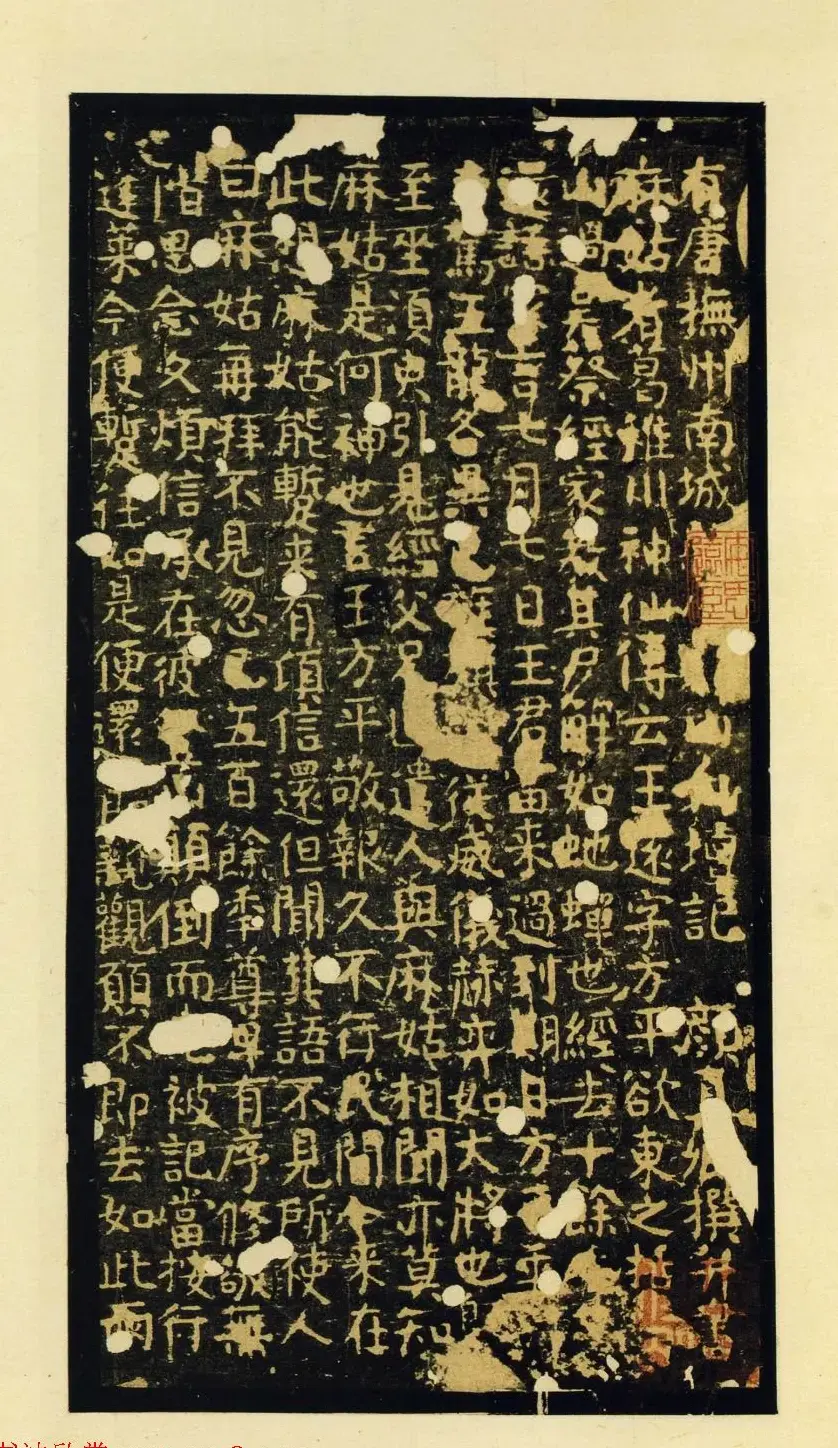 有唐撫州南城山仙壇記 顏真卿撰并書
麻姑者葛稚川神仙傳云王遠字方平欲東之括
山過吳蔡經家教其尸解如虵蟬也經去十餘
還語家言七月七日王君當来過到期日方平乗
駕五龍各異色旌旗從威儀赫弈如大將也
至坐須臾引見經父兄遣人與麻姑相聞亦莫知
麻姑是何神也言王方平敬報久不行民間今来在
此想麻姑能蹔来有頃信還但聞其語不見所使人
曰麻姑再拜不見忽已五百餘季尊卑有序修敬無
階思念久煩信承在彼顛倒而先被記當按行
蓬萊今便蹔往如是便還即親觀願不即去如此兩